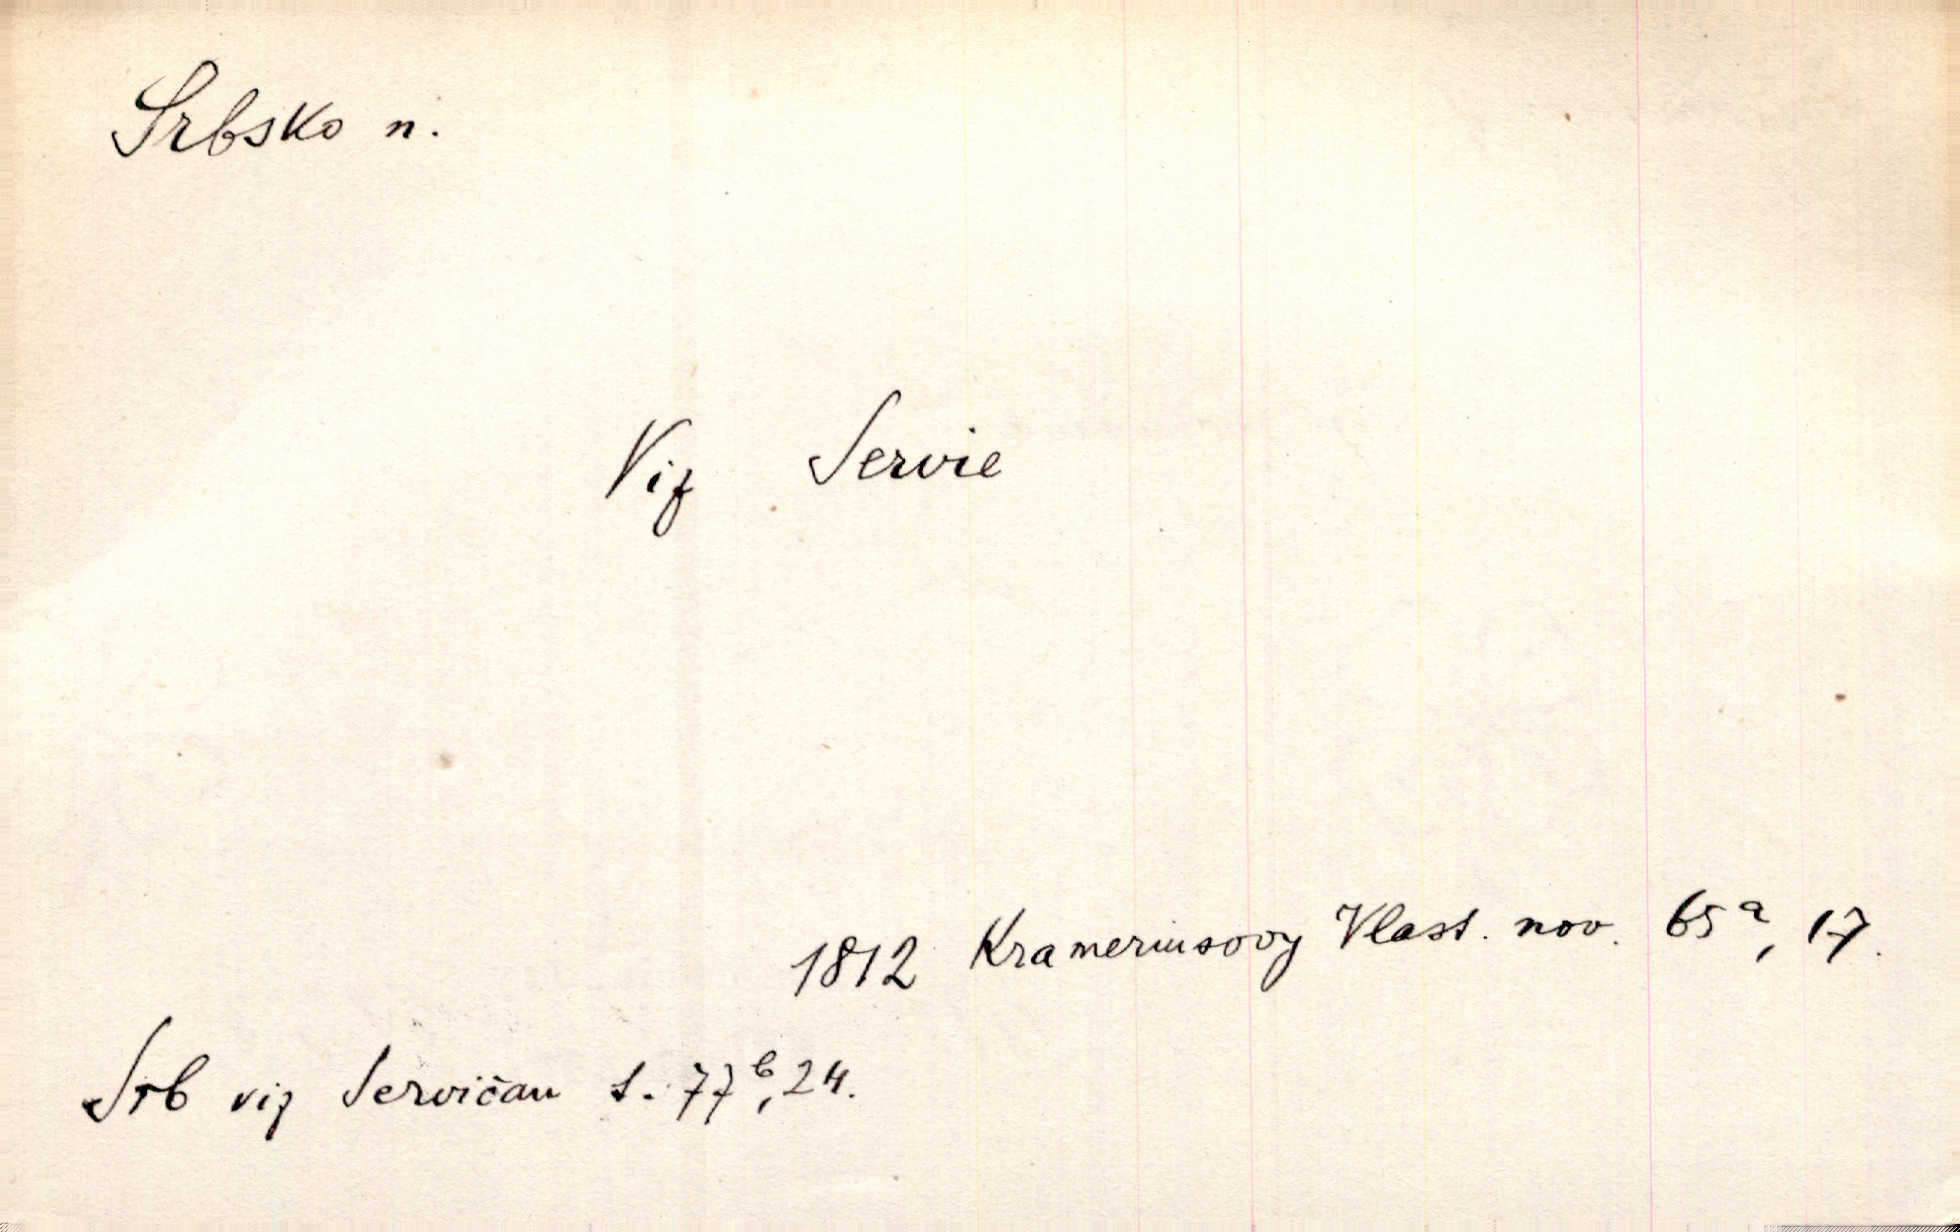 Srbsko n.
Viz Servie
1812 Krameriusovy Vlast. nov. 65ª, 17.
Srb viz Servičan s. 77ᵇ, 24.